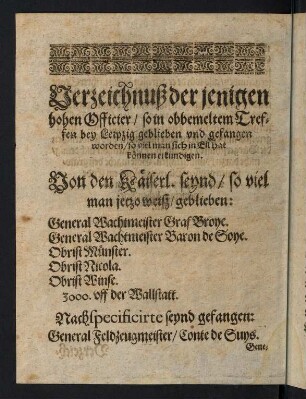 Verzeichnuß der jenigen
hohen Officier / so in obbemeltem Tref-
fen bey Leipzig geblieben vnd gefangen
worden / so viel man sich in Eil hat
können erkundigen.
Von den Käiserl. seynd / so viel
man jetzo weiß / geblieben:
General Wachtmeister Graf Broye.
General Wachtmeister Baron de Soye.
Obrist Münster.
Obrist Nicola.
Obrist Winse.
3000. vff der Wallstatt.
Nachspecificirte seynd gefangen:
General Feldzeugmeister / Conte de Suys.
Gene,